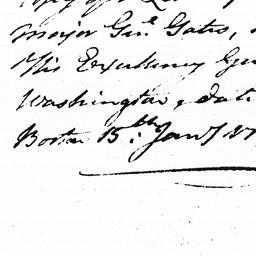 Copy of a
Major Gen.l Gates,
His Excellency Gen
Washington, dat
Boston 15.th Jan.y 17